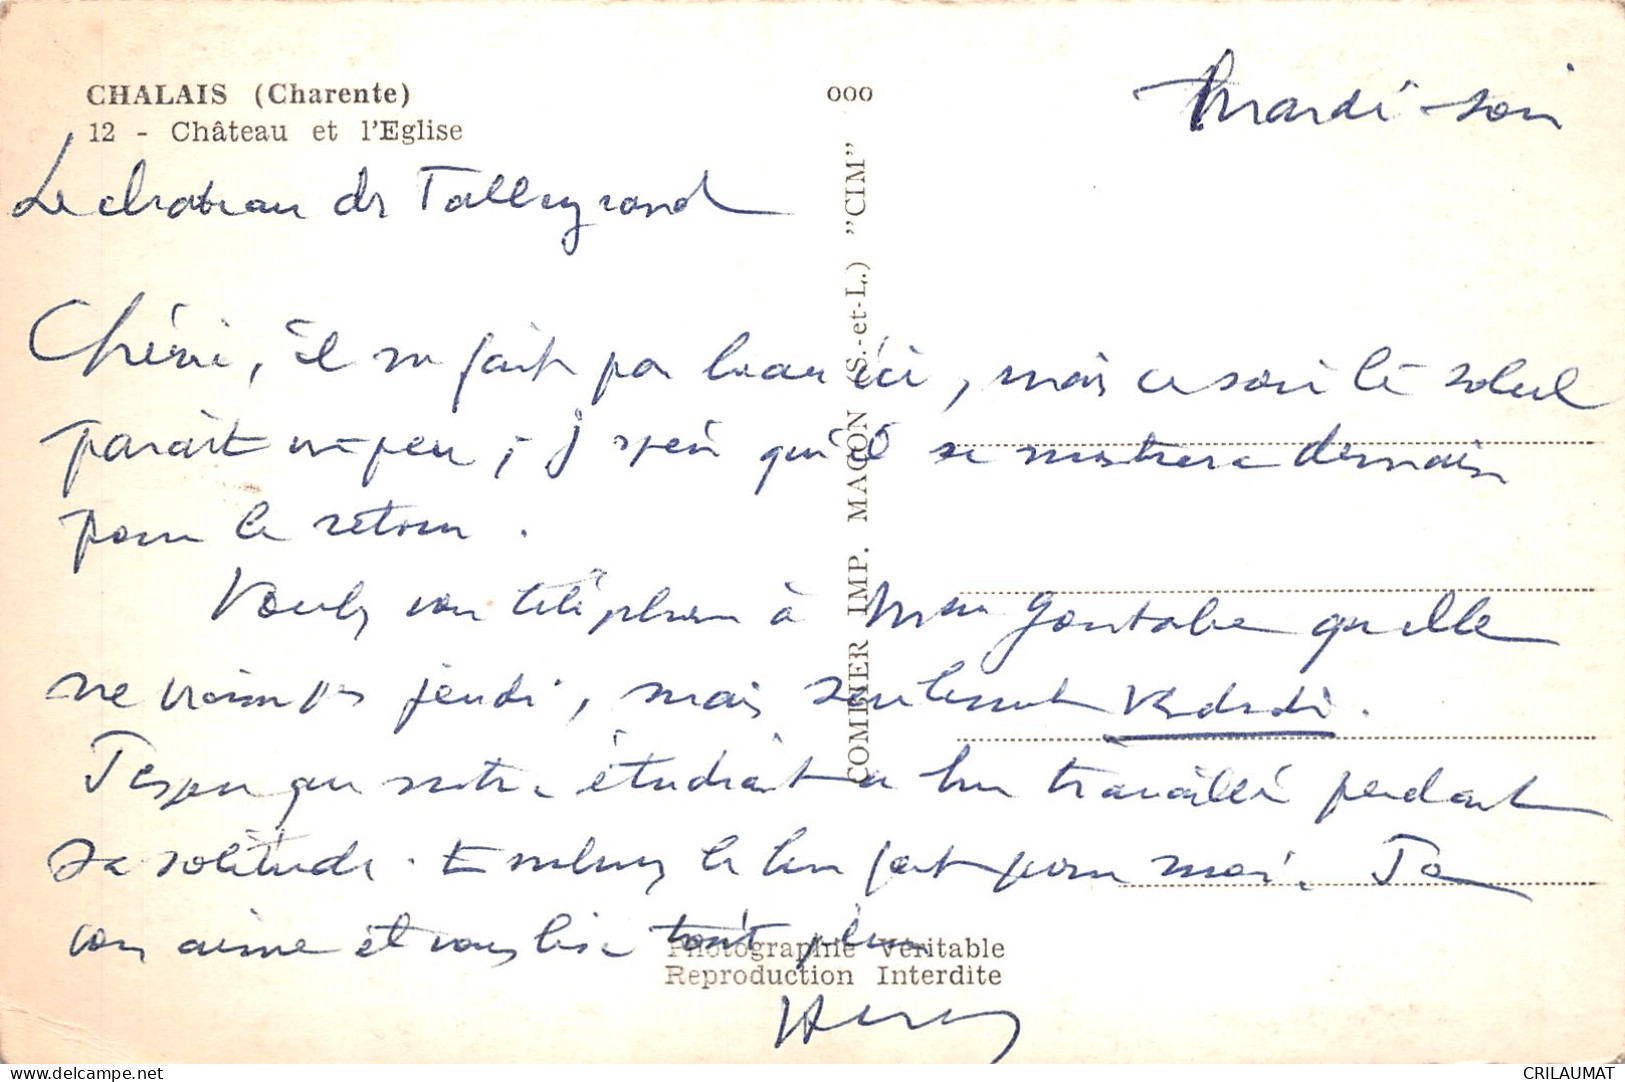 CHALAIS (Charente)
12 - Château et l'Eglise
ooo
Mardi soir
Le chateau de Talleyrand
Chérie, il ne fait pas beau ici, mais ce soir le soleil
parait un peu, j'espère qu'il se montrera demain
pour le retour.
Voulez vous téléphoner à Mme qu'elle
ne vienne pas jeudi, mais seulement Vendredi.
J'espère que notre étudiant a bien travaillé pendant
sa solitude. Embrassez le bien fort pour moi. Je
vous aime et vous bise tout plein
COMBIER IMP. MACON (S.-et-L.) "CIM"
Photographie Véritable
Reproduction Interdite
www.delcampe.net
CRILAUMAT